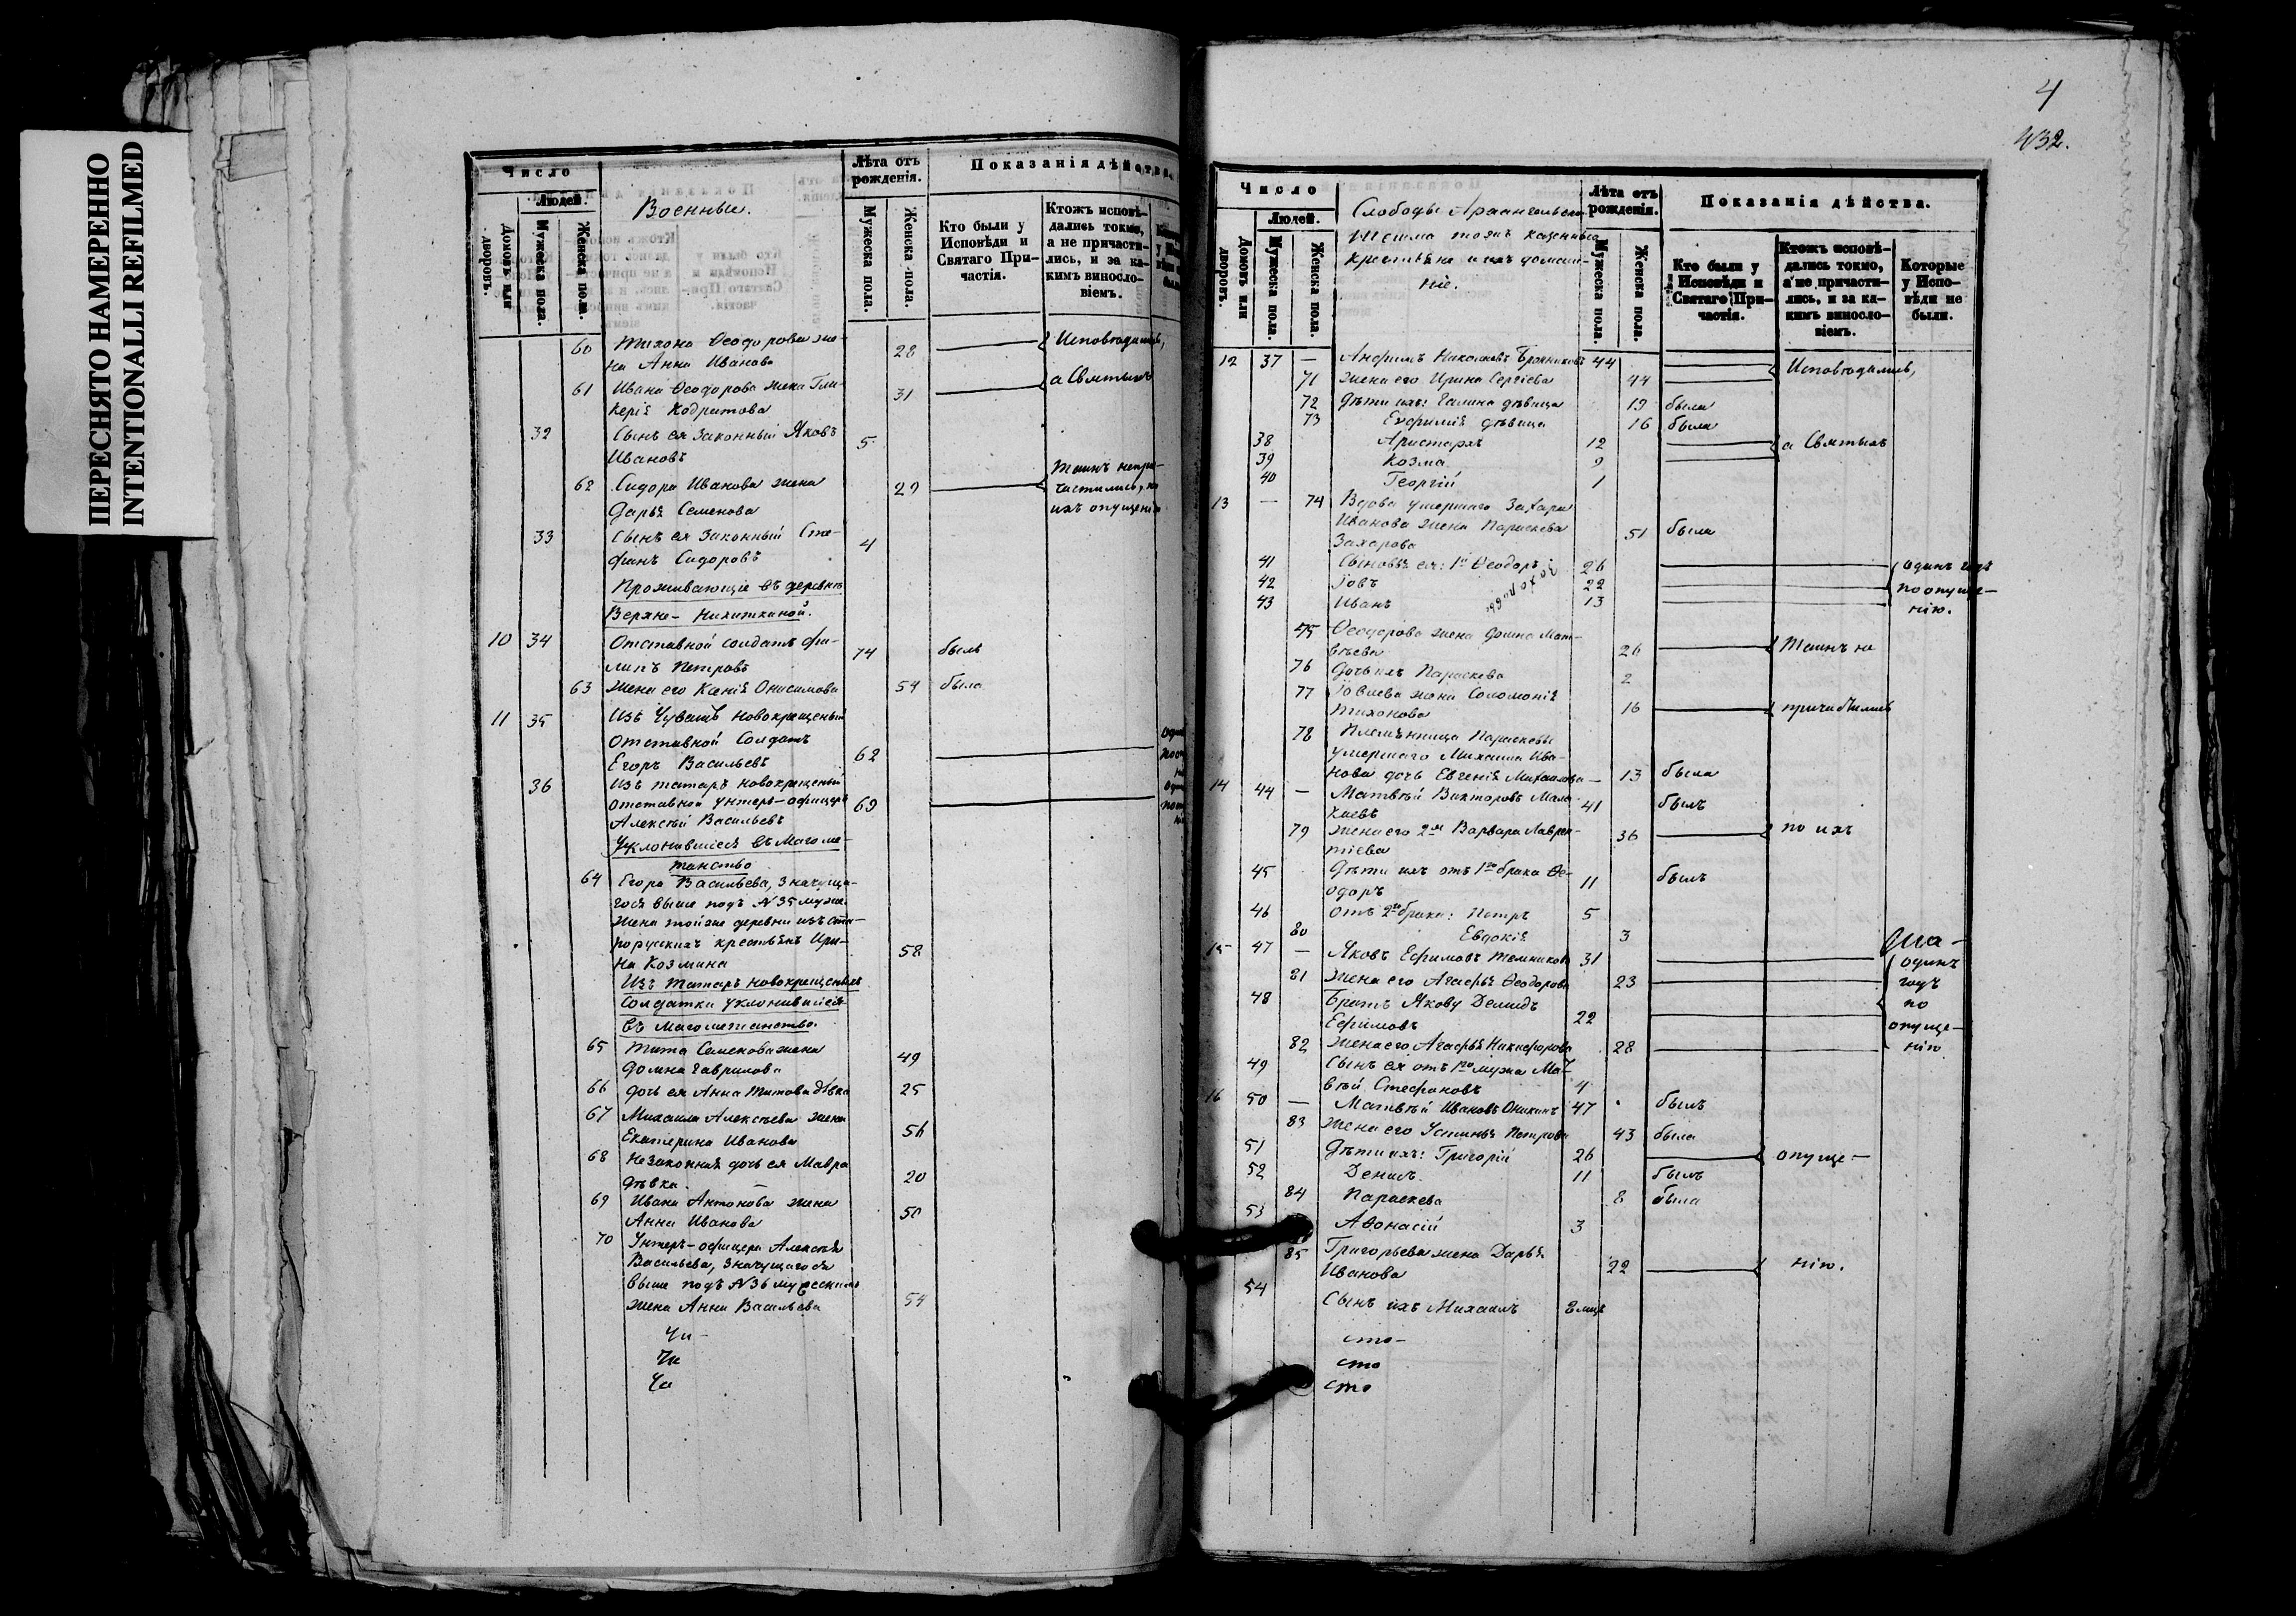 ПЕРЕСНЯТО НАМЕРЕННО
INTENTIONALLI REFILMED
Число
Людей.
Домовъ или дворовъ.
Мужеска пола.
Женска пола.
Военные.
Лѣта отъ рожденія.
Мужеска пола.
Женска пола.
Показанія дѣйства.
Кто были у Исповѣди и Святаго Причастія.
Ктожъ исповѣдались токмо, а не причастились, и за какимъ винословіемъ.
60 Тихона Ѳеодорова же- 28 Исповѣдались,
на Анна Иванова
61 Ивана Ѳеодорова жена Гли- 31 а Святыхъ
керія Кодратова
32 Сынъ ея законный Яковъ 5
Ивановъ
62 Сидора Иванова жена 29 Таинъ непри-
Дарья Семенова частились, по
ихъ опущенію
33 Сынъ ея законный Сте- 4
фанъ Сидоровъ
Проживающіе въ деревнѣ
Верхне-Никиткиной.
10 34 Отставной солдатъ Фи- 74 былъ
липъ Петровъ
63 Жена его Ксенія Онисимова 54 была
11 35 Изъ Чувашъ новокрещеный
Отставной Солдатъ
Егоръ Васильевъ 62
36 Изъ татаръ новокрещеный
отставной унтеръ-офицеръ 69
Алексѣй Васильевъ
Уклонившіеся въ Магоме-
танство
64 Егора Васильева, значуща-
гося выше подъ N 35 муж.
жена тойже деревни изъ ста-
рорусскихъ крестьянъ Ири- 58
на Козмина
Изъ татаръ новокрещеныхъ
Солдатки уклонившіеся
въ Магометанство.
65 Тита Семенова жена 49
Домна Гаврилова
66 дочь ея Анна Титова дѣвка 25
67 Михаила Алексѣева жена
Екатерина Иванова 56
68 Незаконная дочь ея Мавра
дѣвка. 20
69 Ивана Антонова жена
Анна Иванова 50
70 Унтеръ-офицера Алексѣя
Васильева, значущагося
выше подъ N 36 мужескимъ
жена Анна Васильева 54
Чи-
Чи
Чи
4
432.
Число
Людей.
Домовъ или дворовъ.
Мужеска пола.
Женска пола.
Слободы Архангельской
тожъ казенные
крестьяне и ихъ домаш-
ніе.
Лѣта отъ рожденія.
Мужеска пола.
Женска пола.
Показанія дѣйства.
Кто были у Исповѣди и Святаго Причастія.
Ктожъ исповѣдались токмо, а не причастились, и за какимъ винословіемъ.
Которые у Исповѣди не были.
12 37 — Анфимъ Николаевъ 44 Исповѣдались,
71 Жена его Ирина Сергіева 44
72 Дѣти ихъ: Галина дѣвица 19 была
73 Евфимія дѣвица 16 была
38 Аристархъ 12 а Святыхъ
39 Козма 9
40 Георгій 1
13 — 74 Вдова умершаго Захара
Иванова жена Параскева 51 была
Захарова
41 Сыновья ея: 1й Ѳеодоръ 26 одинъ годъ
42 Іовъ 22 по опуще-
43 Иванъ 13 нію.
Захаровы
75 Ѳеодорова жена Домна Мат-
вѣева 26 Таинъ не
76 Дочь ихъ Параскева 2
77 Іовлева жена Соломонія
Тихонова 16 причастились
78 Племянница Параскевы
умершаго Михаила Ива-
нова дочь Евгенія Михайлова — 13 была
14 44 — Матвѣй Викторовъ Мала- 41 былъ
хаевъ
79 Жена его 2я Варвара Лаврен- 36 по ихъ
тіева
45 Дѣти ихъ отъ 1го брака Ѳе- 11 былъ
одоръ
46 отъ 2го брака: Петръ 5
80 Евдокія 3
15 47 — Яковъ Ефимовъ Темниковъ 31 одинъ
81 Жена его Агафья Ѳеодорова 23 годъ
48 Братъ Якову Демидъ по
Ефимовъ 22 опуще-
82 Жена его Агафья Никифорова 28 нію
49 Сынъ ея отъ 1го мужа Мат-
вѣй Стефановъ 4
16 50 — Матвѣй Ивановъ Оникинъ 47 былъ
83 Жена его Устинья Петрова 43 была
51 Дѣти ихъ: Григорій 26 опуще-
52 Денисъ. 11 былъ
84 Параскева 8 была
53 Аѳонасій 3
85 Григорьева жена Дарья
Иванова 22 нію.
54 Сынъ ихъ Михаилъ 2 мца
сто-
сто
сто